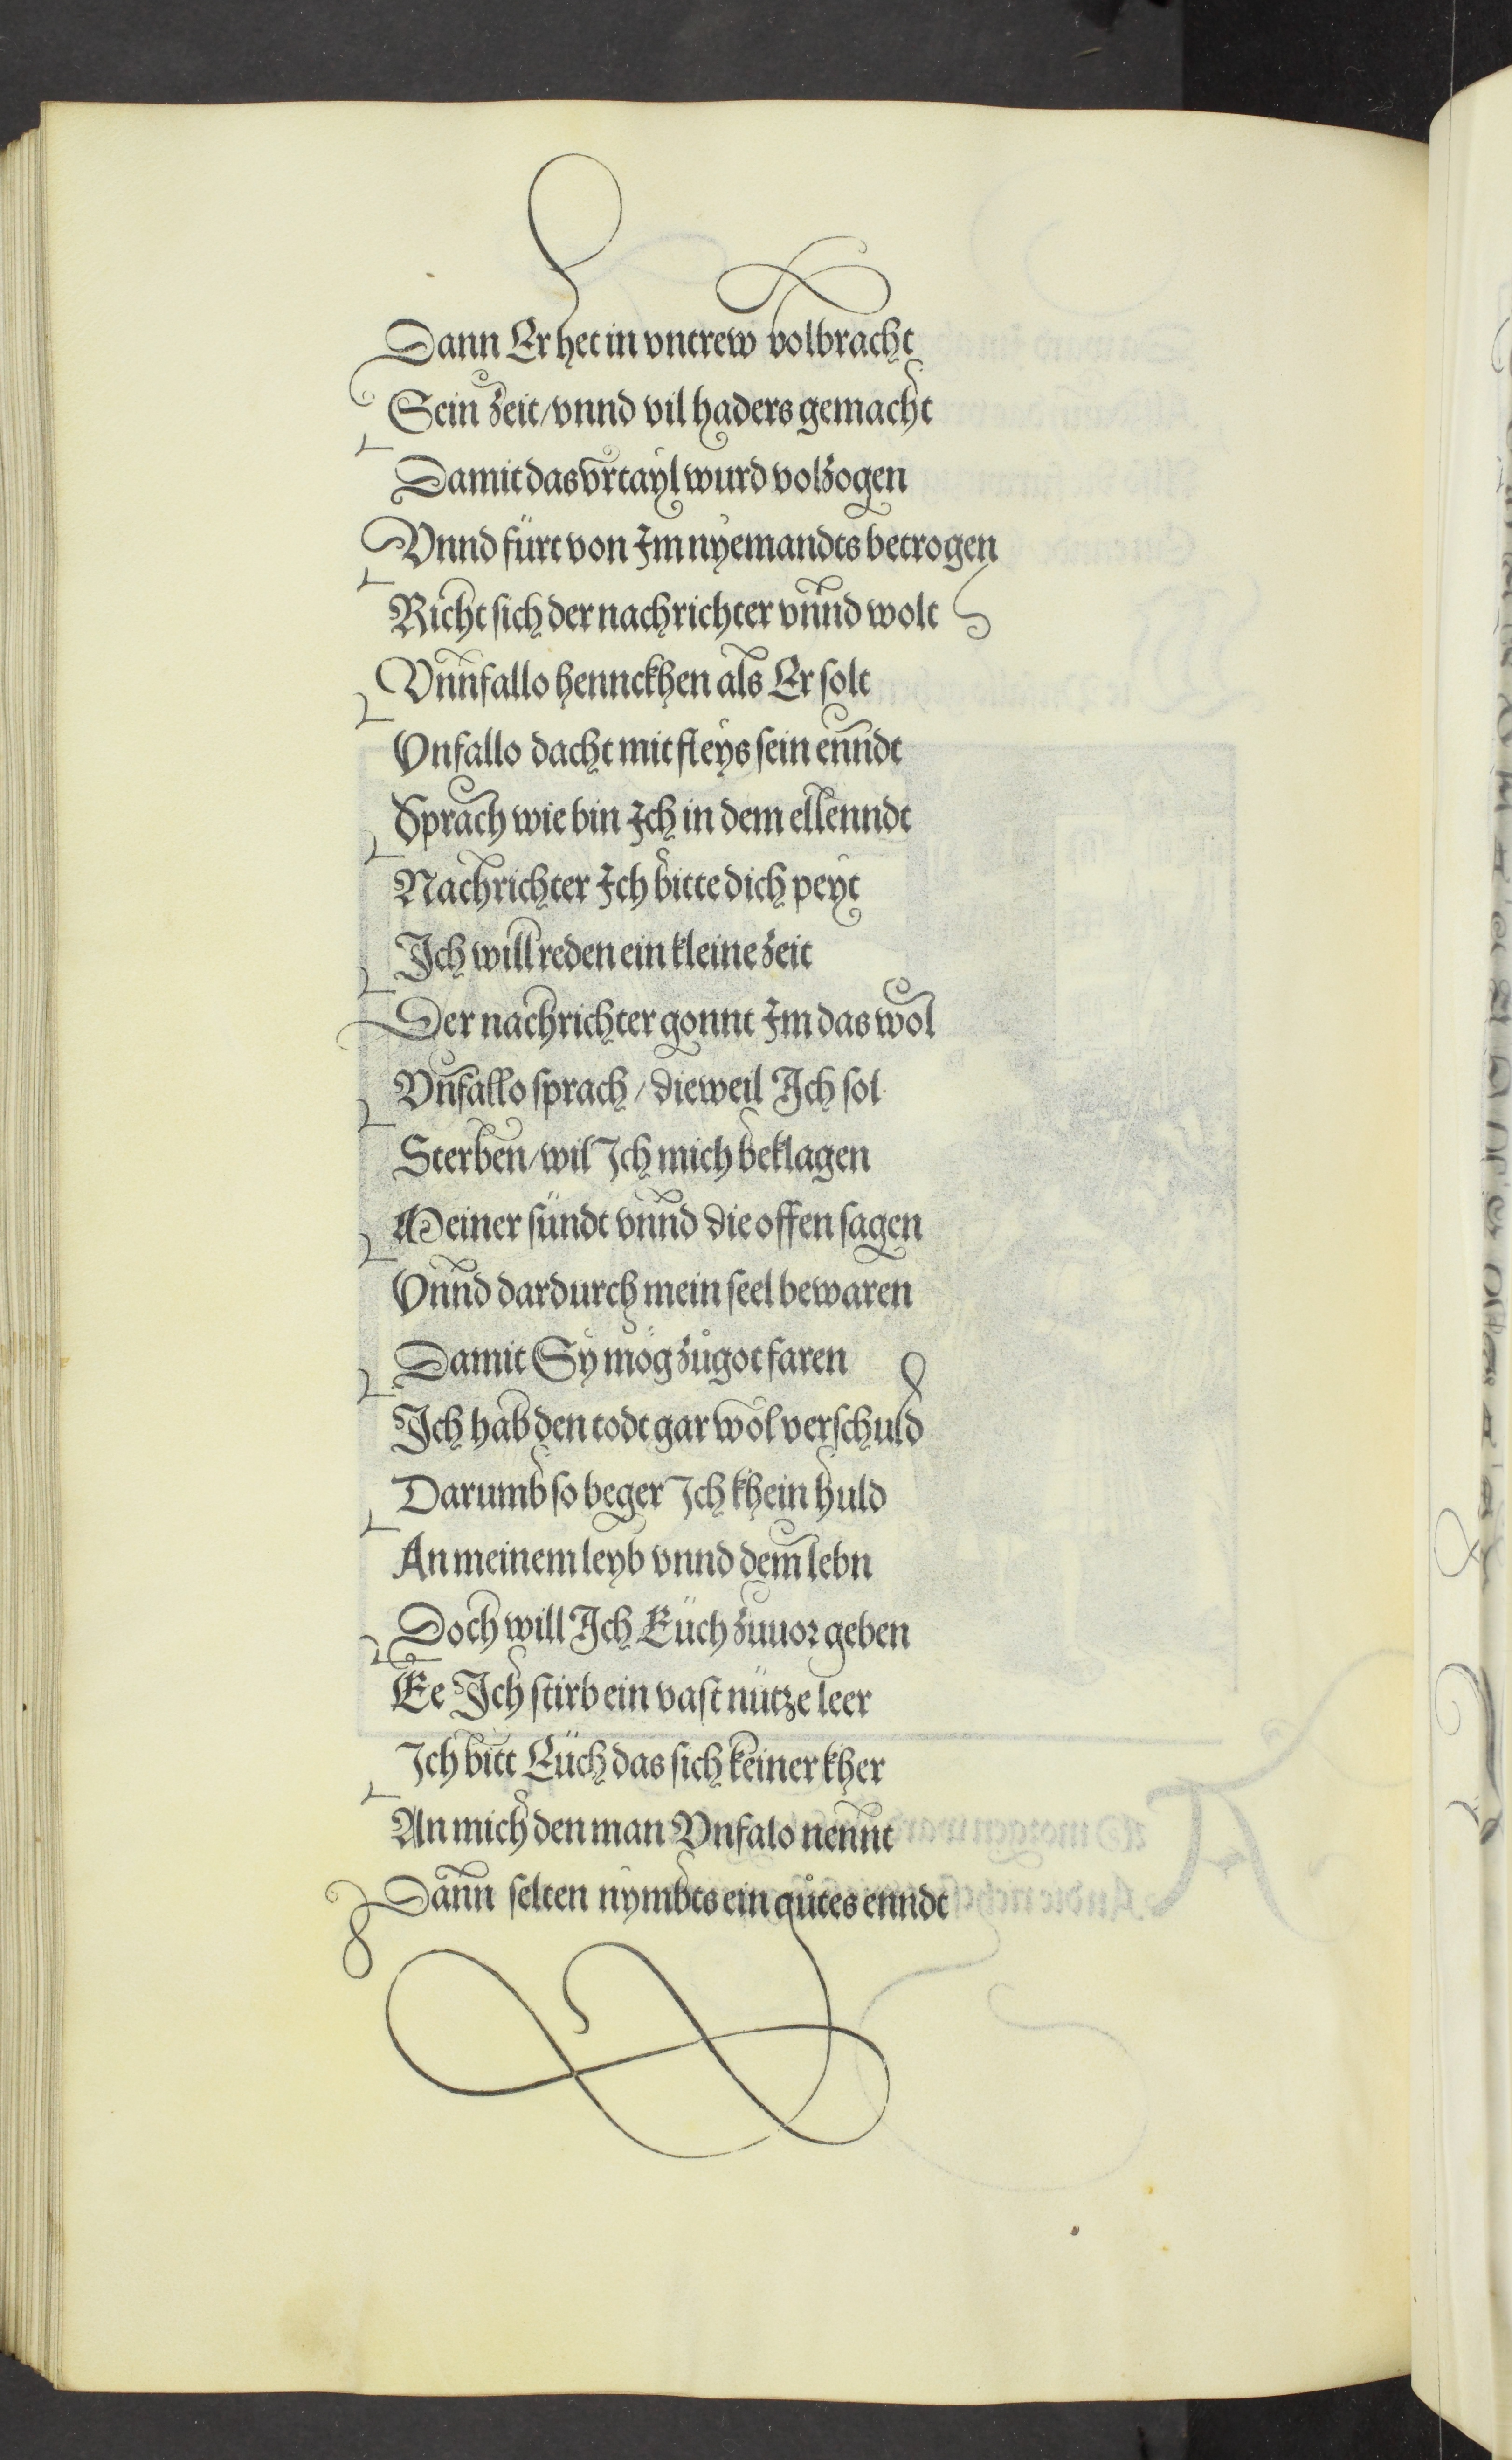 Dann Er het in vntrew volbracht
Sein zeit/vnnd vil haders gemacht
Damit das vrtayl wurd volzogen
Vnnd fürt von Im nyemandts betrogen
Richt sich der nachrichter vnnd wolt
Vnnfallo hennckhen als Er solt
Vnfallo dacht mit fleys sein enndt
Sprach wie bin Ich in dem ellenndt
Nachrichter Ich bitte dich peyt
Ich will reden ein kleine zeit
Der nachrichter gonnt Im das wol
Vnfallo sprach/dieweil Ich sol
Sterben/wil Ich mich beklagen
Meiner sündt vnnd die offen sagen
Vnnd dardurch mein seel bewaren
Damit Sy mög zů got faren
Ich hab den todt gar wol verschuld
Darumb so beger Ich khein huld
An meinem leyb vnnd dem lebn
Doch will Ich Eüch zuuor geben
Ee Ich stirb ein vast nütze leer
Ich bitt Eüch das sich keiner kher
An mich den man Vnfalo nennt
Dann selten nymbts ein gůtes enndt